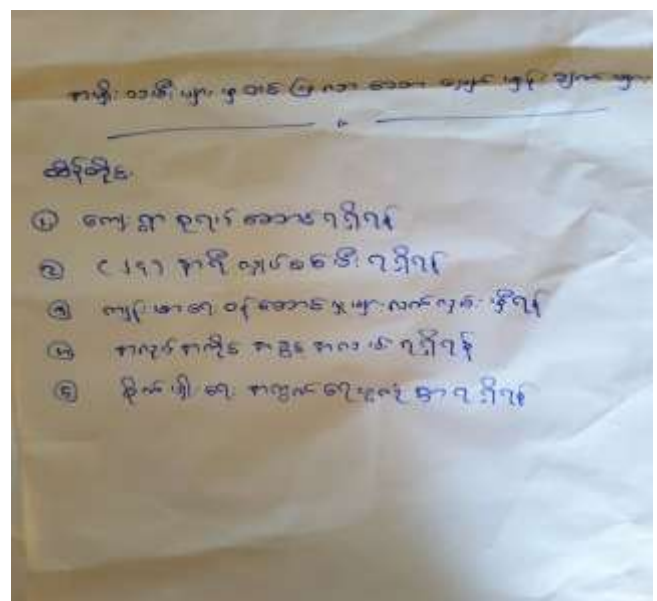 အမျိုးသမီးများမှ တင်ပြလာသော မျှော်မှန်းချက်များ
ထိန်တိုင်
① ကျေးရွာ စုရပ် ဆောင် ရရှိရန်
② (၂၄) နာရီ လျှပ်စစ်မီး ရရှိရန်
③ ကျန်းမာရေး ဝန်ဆောင်မှုများ လက်လှမ်းမှီရန်
④ အလုပ်အကိုင် အခွင့်အလမ်း ရရှိရန်
⑤ စိုက်ပျိုးရေး အတွက် ရေ ရရှိရန်